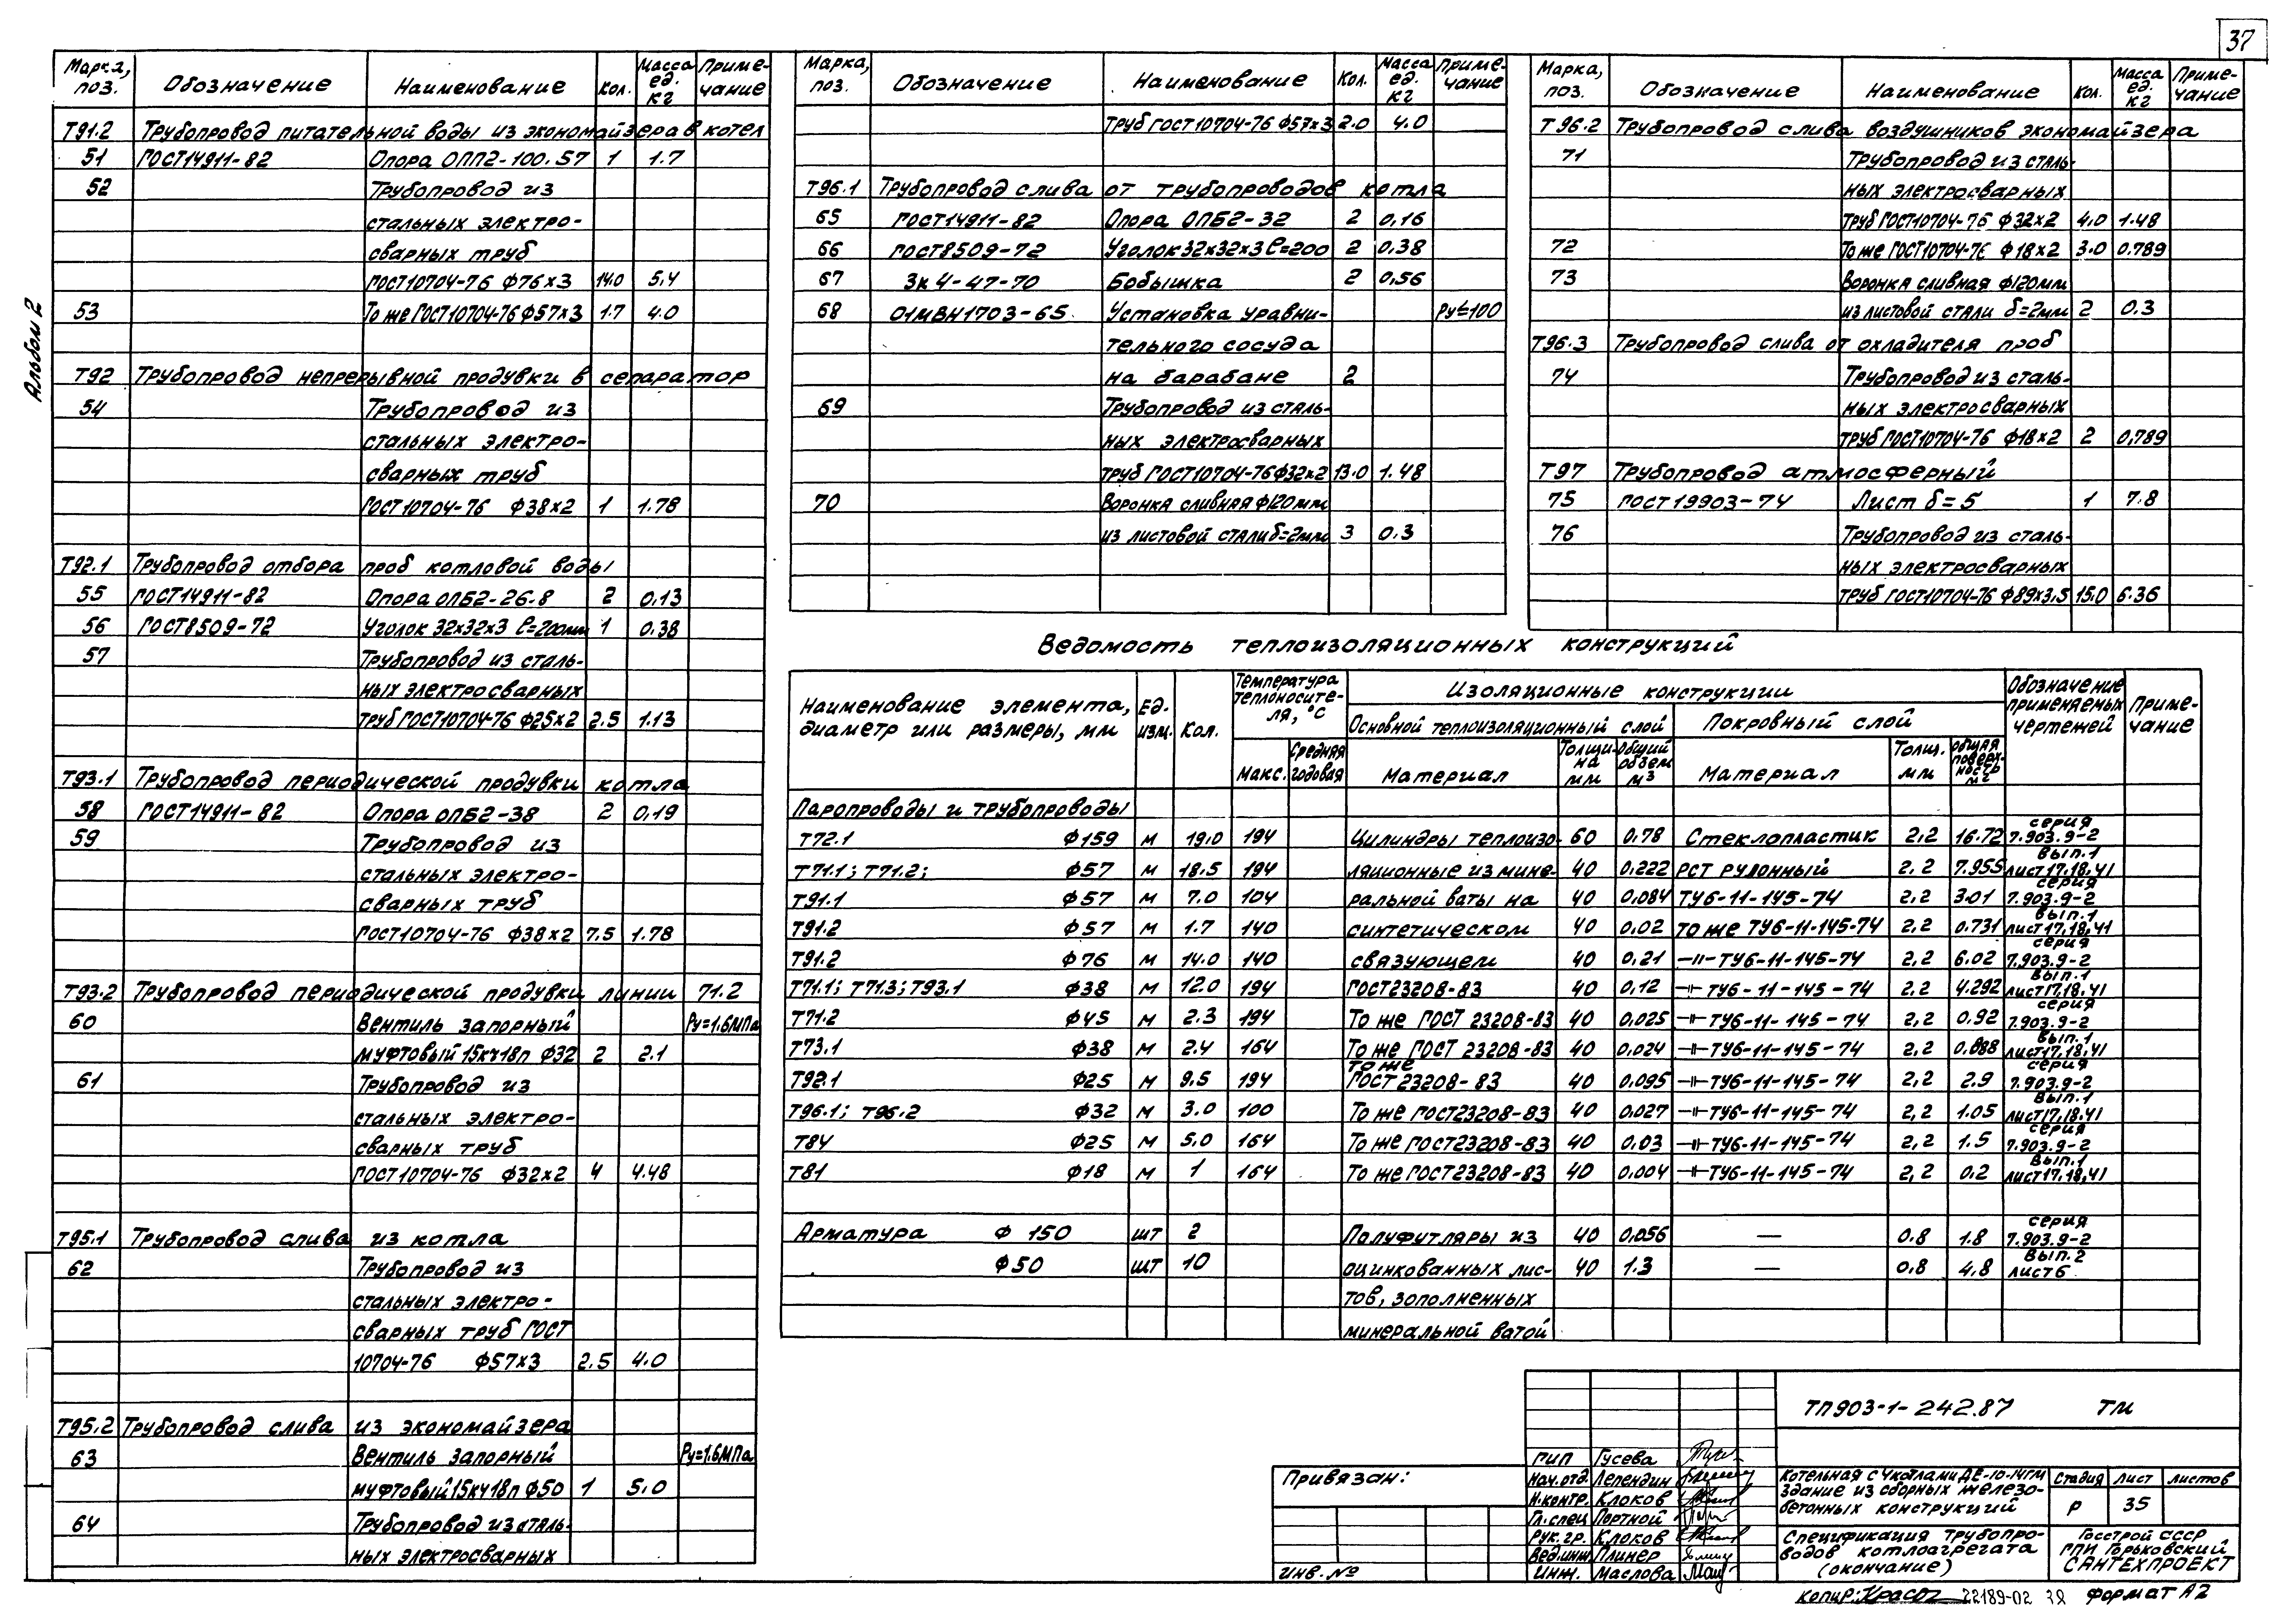 37
Альбом 2
Марка, поз. Обозначение Наименование Кол. Масса ед. кг Примечание
Т91.2 Трубопровод питательной воды из экономайзера в котел
51 ГОСТ14911-82 Опора ОПП2-100.57 1 1.7
52 Трубопровод из
стальных электро-
сварных труб
ГОСТ10704-76 ф76х3 14.0 5,4
53 То же ГОСТ10704-76 ф57х3 1.7 4.0
Т92 Трубопровод непрерывной продувки в сепаратор
54 Трубопровод из
стальных электро-
сварных труб
ГОСТ10704-76 ф38х2 1 1.78
Т92.1 Трубопровод отбора проб котловой воды
55 ГОСТ14911-82 Опора ОПБ2-26.8 2 0,13
56 ГОСТ8509-72 Уголок 32х32х3 ℓ=200мм 1 0.38
57 Трубопровод из сталь-
ных электросварных
труб ГОСТ10704-76 ф25х2 2.5 1.13
Т93.1 Трубопровод периодической продувки котла
58 ГОСТ14911-82 Опора ОПБ2-38 2 0,19
59 Трубопровод из
стальных электро-
сварных труб
ГОСТ10704-76 ф38х2 7.5 1.78
Т93.2 Трубопровод периодической продувки линии 71.2
60 Вентиль запорный Ру=1.6МПа
муфтовый 15кч18п ф32 2 2.1
61 Трубопровод из
стальных электро-
сварных труб
ГОСТ10704-76 ф32х2 4 4.48
Т95.1 Трубопровод слива из котла
62 Трубопровод из
стальных электро-
сварных труб ГОСТ
10704-76 ф57х3 2.5 4.0
Т95.2 Трубопровод слива из экономайзера
63 Вентиль запорный Ру=1.6МПа
муфтовый 15кч18п ф50 1 5.0
64 Трубопровод из сталь-
ных электросварных
Марка, поз. Обозначение Наименование Кол. Масса ед. кг Примечание
труб ГОСТ10704-76 ф57х3 2.0 4.0
Т96.1 Трубопровод слива от трубопроводов котла
65 ГОСТ14911-82 Опора ОПБ2-32 2 0,16
66 ГОСТ8509-72 Уголок 32х32х3 ℓ=200 2 0.38
67 ЗК4-47-70 Бобышка 2 0,56
68 01МВН1703-65 Установка уравни- Ру≤100
тельного сосуда
на барабане 2
69 Трубопровод из сталь-
ных электросварных
труб ГОСТ10704-76 ф32х2 13.0 1.48
70 Воронка сливная ф120мм
из листовой стали δ=2мм 3 0.3
Марка, поз. Обозначение Наименование Кол. Масса ед. кг Примечание
Т96.2 Трубопровод слива воздушников экономайзера
71 Трубопровод из сталь-
ных электросварных
труб ГОСТ10704-76 ф32х2 4.0 1.48
72 То же ГОСТ10704-76 ф18х2 3.0 0.789
73 Воронка сливная ф120мм
из листовой стали δ=2мм 2 0.3
Т96.3 Трубопровод слива от охладителя проб
74 Трубопровод из сталь-
ных электросварных
труб ГОСТ10704-76 ф18х2 2 0,789
Т97 Трубопровод атмосферный
75 ГОСТ19903-74 Лист δ=5 1 7.8
76 Трубопровод из сталь-
ных электросварных
труб ГОСТ10704-76 ф89х3.5 15.0 6.36
Ведомость теплоизоляционных конструкций
Наименование элемента, диаметр или размеры, мм Ед. изм. Кол. Температура теплоносителя, °С Изоляционные конструкции Обозначение применяемых чертежей Примечание
Основной теплоизоляционный слой Покровный слой
Макс. Средняя годовая Материал Толщина мм Общий объем м3 Материал Толщ. мм Общая поверхность м2
Паропроводы и трубопроводы
Т72.1 ф159 м 19.0 194 Цилиндры теплоизо- 60 0.78 Стеклопластик 2,2 16.72 серия 7.903.9-2
Т71.1; Т71.2; ф57 м 18.5 194 ляционные из мине- 40 0.222 РСТ рулонный 2,2 7.955 Вып.1 лист17,18,41
Т91.1 ф57 м 7.0 104 ральной ваты на 40 0.084 ТУ6-11-145-74 2,2 3.01 серия 7.903.9-2
Т91.2 ф57 м 1.7 140 синтетическом 40 0.02 то же ТУ6-11-145-74 2,2 0.731 Вып.1 лист17,18,41
Т91.2 ф76 м 14.0 140 связующем 40 0,21 -"- ТУ6-11-145-74 2,2 6.02 серия 7.903.9-2
Т71.1; Т71.3; Т93.1 ф38 м 12.0 194 ГОСТ23208-83 40 0,12 -"- ТУ6-11-145-74 2,2 4.292 Вып.1 лист17,18,41
Т71.2 ф45 м 2.3 194 То же ГОСТ 23208-83 40 0.025 -"- ТУ6-11-145-74 2,2 0,92 серия 7.903.9-2
Т73.1 ф38 м 2.4 164 То же ГОСТ 23208-83 40 0.024 -"- ТУ6-11-145-74 2,2 0.888 Вып.1 лист17,18,41
Т92.1 ф25 м 9.5 194 То же ГОСТ23208-83 40 0,095 -"- ТУ6-11-145-74 2,2 2.9 серия 7.903.9-2
Т96.1; Т96.2 ф32 м 3.0 100 То же ГОСТ23208-83 40 0.027 -"- ТУ6-11-145-74 2,2 1.05 Вып.1 лист17,18,41
Т84 ф25 м 5.0 164 То же ГОСТ23208-83 40 0.03 -"- ТУ6-11-145-74 2,2 1.5 серия 7.903.9-2
Т81 ф18 м 1 164 То же ГОСТ23208-83 40 0.004 -"- ТУ6-11-145-74 2,2 0.2 Вып.1 лист17,18,41
Арматура ф 150 шт 2 Полуфутляры из 40 0,056 — 0.8 1.8 серия 7.903.9-2
ф50 шт 10 оцинкованных лис- 40 1.3 — 0,8 4,8 Вып.2 лист6
тов, зополненных
минеральной ватой
ТП903-1-242.87 ТМ
Привязан:
Инв. №
ГИП Гусева
Нач.отд. Лепендин
Н.контр. Клоков
Гл.спец Портной
Рук.гр. Клоков
Вед.инж Плинер
Инж. Маслова
Котельная с 4 котлами ДЕ-10-14ГМ
Здание из сборных железо-
бетонных конструкций
Стадия Лист Листов
Р 35
Спецификация трубопро-
водов котлоагрегата
(окончание)
Госстрой СССР
ГПИ Горьковский
САНТЕХПРОЕКТ
Копир: 22189-02 38 Формат А2